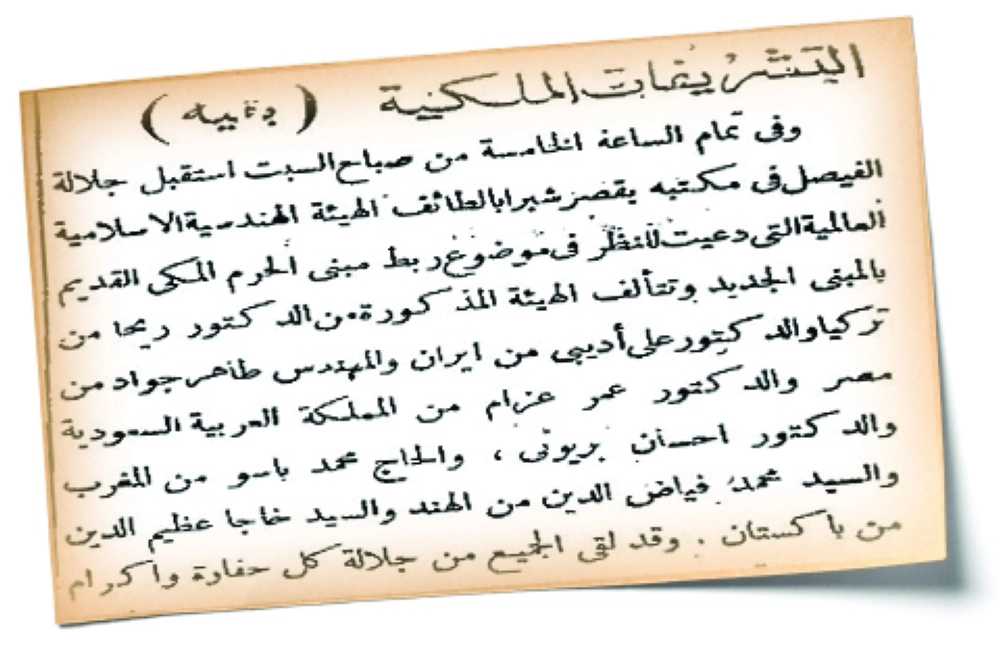 التشريفات الملكية ( بقية )
وفى تمام الساعة الخامسة من صباح السبت استقبل جلالة
الفيصل فى مكتبه بقصر شبرا بالطائف الهيئة الهندسية الاسلامية
العالمية التى دعيت للنظر فى موضوع ربط مبنى الحرم المكى القديم
بالمبنى الجديد وتتألف الهيئة المذكورة من الدكتور ريحا من
تركيا والدكتور على أديبى من ايران والمهندس طاهر جواد من
مصر والدكتور عمر عزام من المملكة العربية السعودية
والدكتور احسان بريونى ، والحاج محمد باسو من المغرب
والسيد محمد فياض الدين من الهند والسيد خاجا عظيم الدين
من باكستان . وقد لقى الجميع من جلالة كل حفاوة واكرام